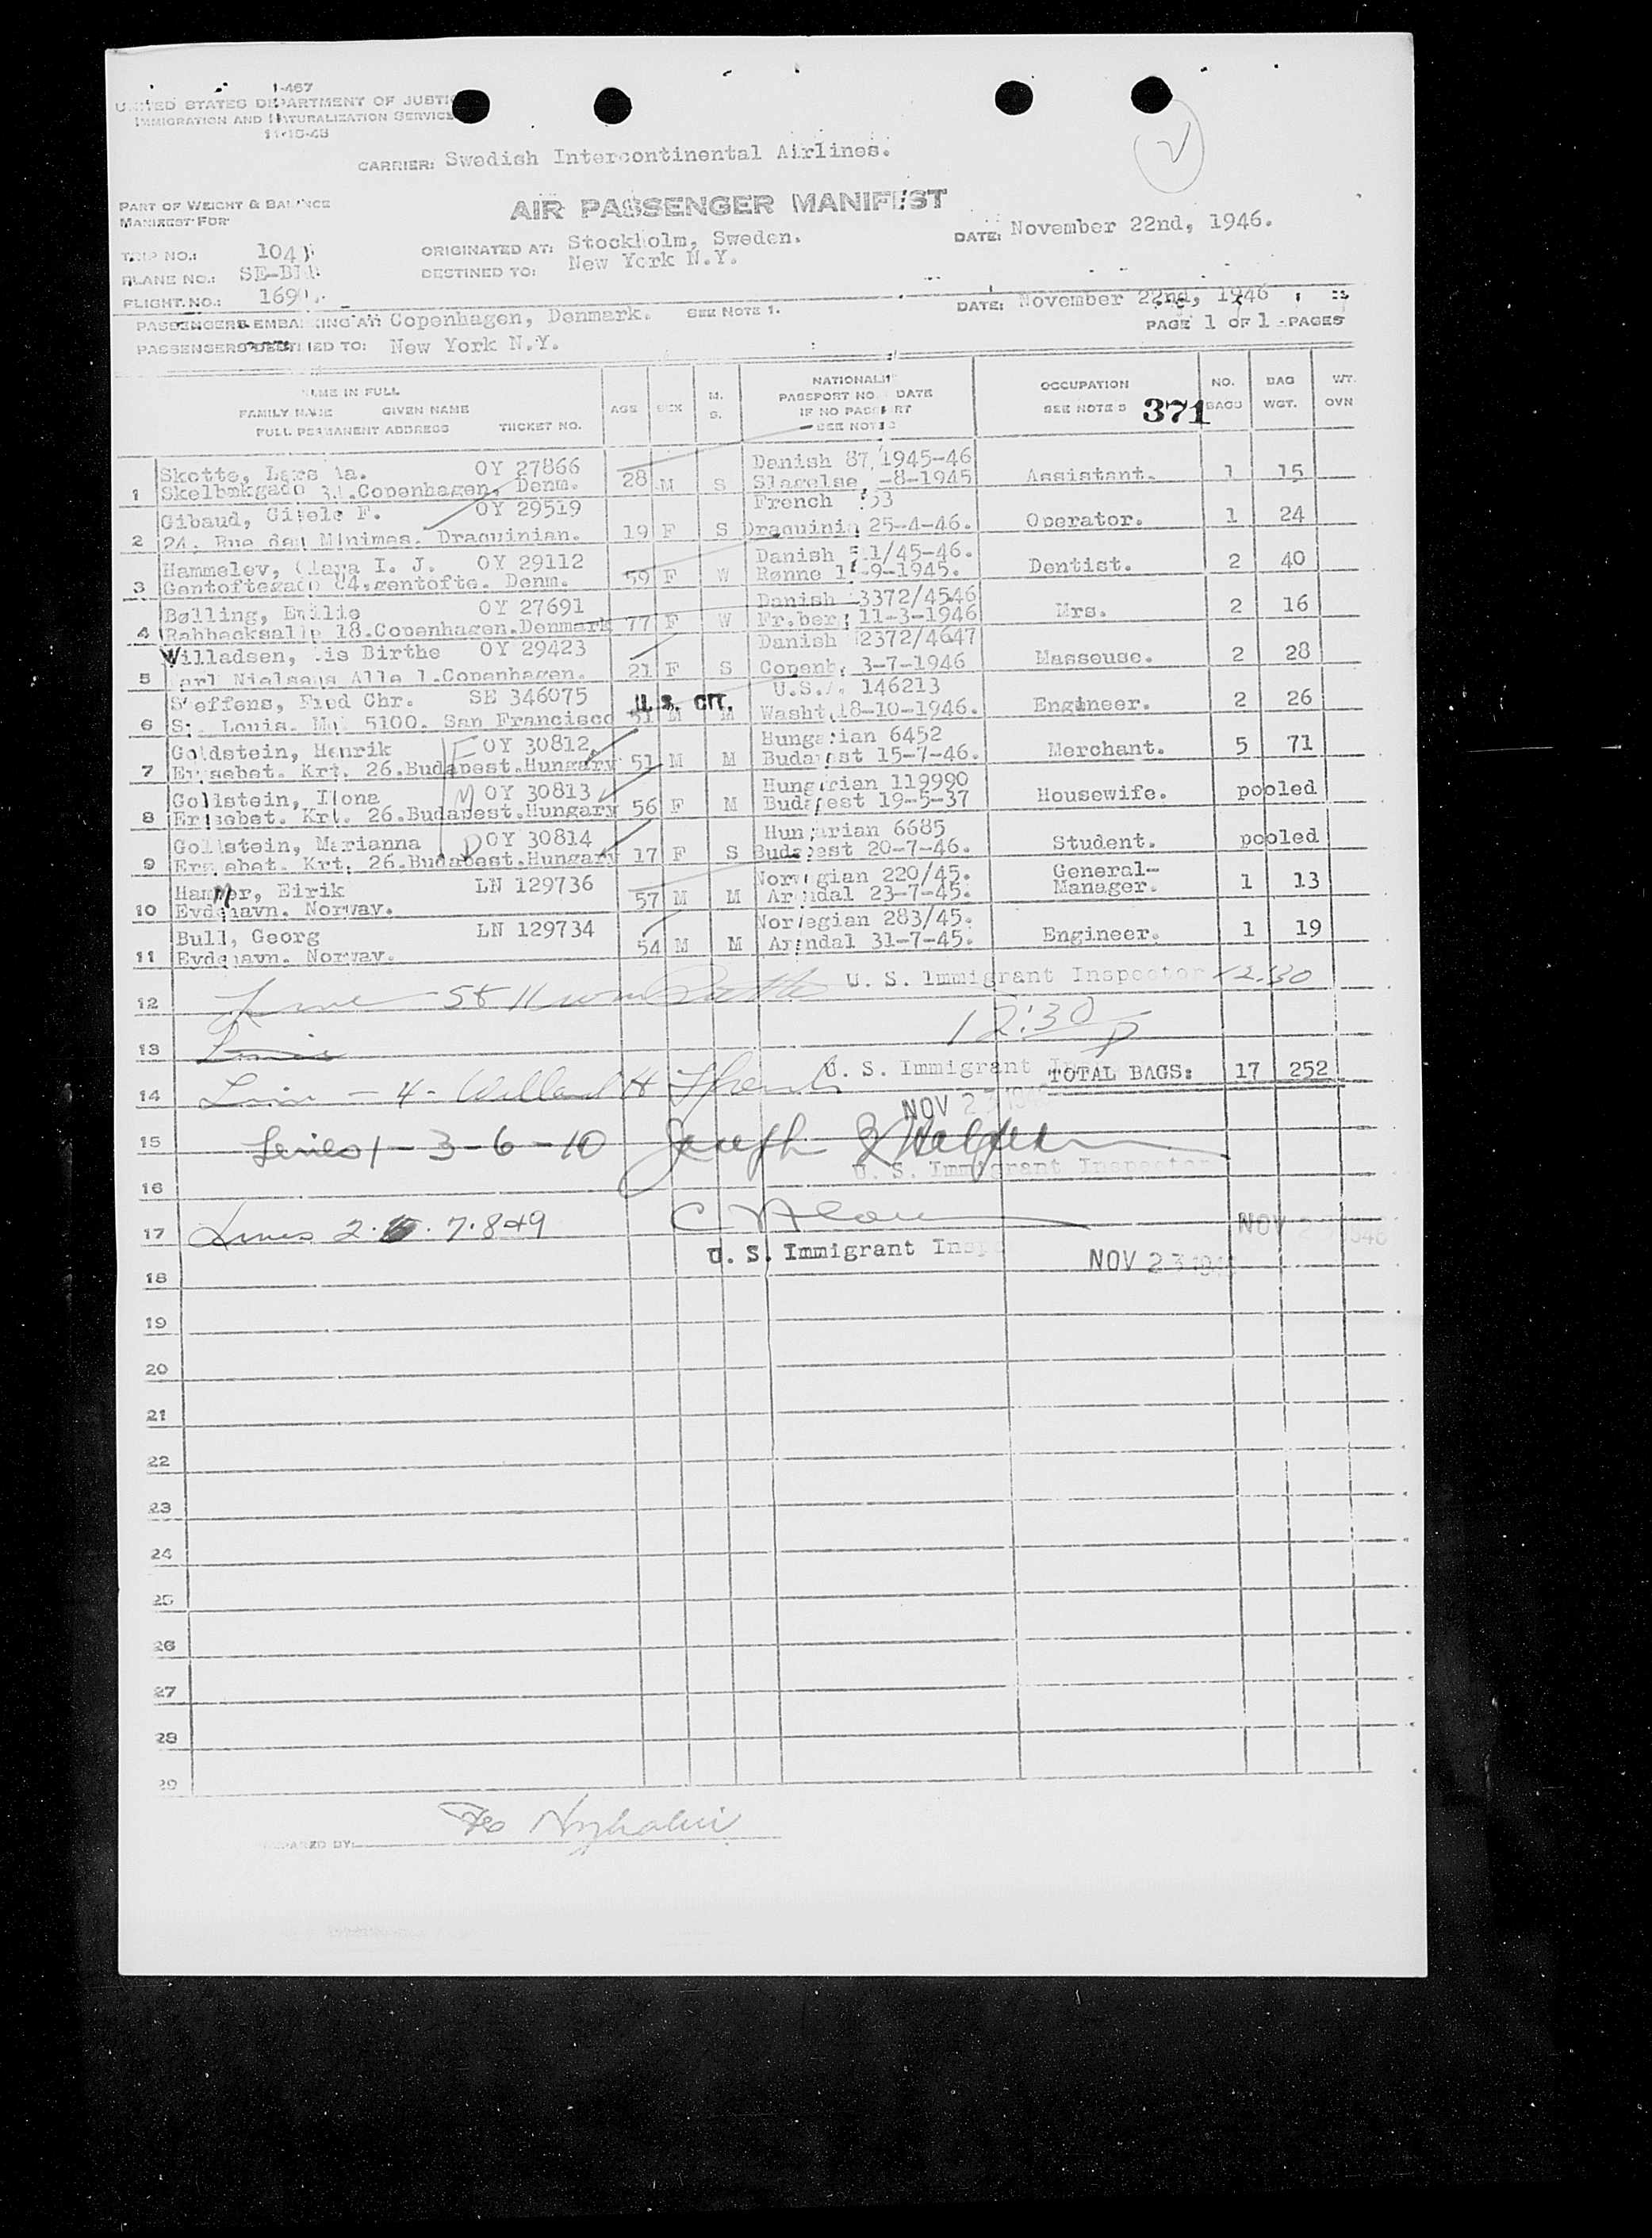 I-467
UNITED STATES DEPARTMENT OF JUSTICE
IMMIGRATION AND NATURALIZATION SERVICE
CARRIER: Swedish Intercontinental Airlines.
PART OF WEIGHT & BALANCE
MANIFEST FOR
AIR PASSENGER MANIFEST
TRIP NO.:
ORIGINATED AT: Stockholm, Sweden. DATE: November 22nd, 1946.
PLANE NO.:
DESTINED TO: New York N.Y.
FLIGHT NO.:
PASSENGERS EMBARKING AT: Copenhagen, Denmark. SEE NOTE 1. DATE: November 22nd, 1946
PASSENGERS DESTINED TO: New York N.Y. PAGE 1 OF 1 PAGES
NAME IN FULL
FAMILY NAME GIVEN NAME
FULL PERMANENT ADDRESS TICKET NO.
AGE SEX M. S.
NATIONALITY
PASSPORT NO. DATE
IF NO PASSPORT
SEE NOTE
OCCUPATION
SEE NOTE 3 371
NO. BAGS
BAG WGT.
WT. OVN
1 Skotte, Lars Aa. OY 27866 28 M S Danish 87, 1945-46 Assistant. 1 15
Copenhagen, Denm. Slagelse -8-1945
2 Gibaud, Gisele F. OY 29519 19 F S French Operator. 1 24
24, Rue des Minimes. Draguinian. 25-4-46.
3 Hammelev, Clara I. J. OY 29112 59 F W Danish 1/45-46. Dentist. 2 40
84, gentofte. Denm. Rønne -9-1945.
4 Bølling, Emilie OY 27691 77 F W Danish 3372/4546 Mrs. 2 16
18. Copenhagen. Denmark Fr.ber 11-3-1946
5 Willadsen, Lis Birthe OY 29423 21 F S Danish 2372/4647 Masseuse. 2 28
Carl Nielsens Alle 1. Copenhagen. Copenh. 3-7-1946
6 Steffens, Fred Chr. SE 346075 U.S. CIT. 51 M M U.S.A. 146213 Engineer. 2 26
St. Louis. Mo. 5100. San Francisco Washt. 18-10-1946.
7 Goldstein, Henrik F OY 30812 51 M M Hungarian 6452 Merchant. 5 71
Erzsebet. Krt. 26. Budapest. Hungary Budapest 15-7-46.
8 Goldstein, Ilona M OY 30813 56 F M Hungarian 119990 Housewife. pooled
Erzsebet. Krt. 26. Budapest. Hungary Budapest 19-5-37
9 Goldstein, Marianna D OY 30814 17 F S Hungarian 6685 Student. pooled
Erzsebet. Krt. 26. Budapest. Hungary Budapest 20-7-46.
10 Hammer, Eirik LN 129736 57 M M Norwegian 220/45. General-Manager. 1 13
Eydehavn. Norway. Arendal 23-7-45.
11 Bull, Georg LN 129734 54 M M Norwegian 283/45. Engineer. 1 19
Eydehavn. Norway. Arendal 31-7-45.
12 U. S. Immigrant Inspector 12.30
13 12:30 P
14 U. S. Immigrant TOTAL BAGS: 17 252
NOV 23 1946
15 1-3-6-10 Joseph
U. S. Immigrant Inspector
16
17 Lines 2. 7.8&9
NOV 23 1946
U. S. Immigrant Insp NOV 23 194
18
19
20
21
22
23
24
25
26
27
28
29
PREPARED BY: